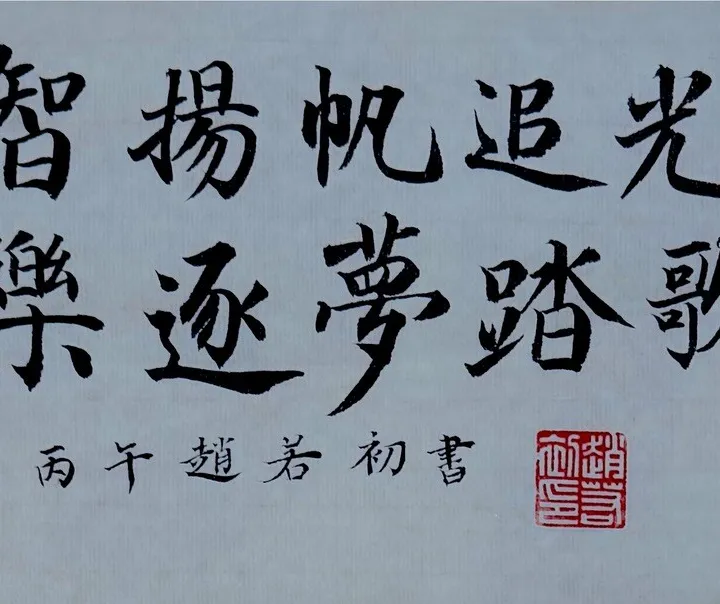 智揚帆追光
樂逐夢踏歌
丙午趙若初書
趙若初印